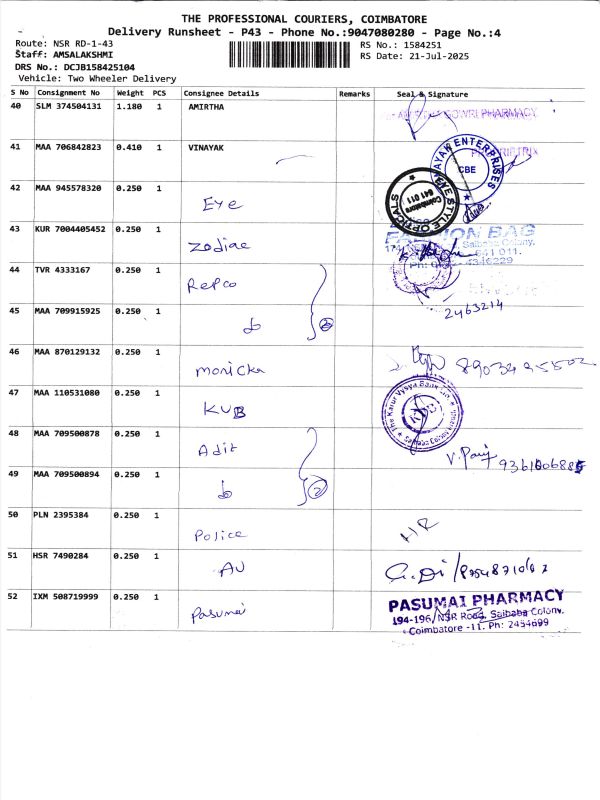 THE PROFESSIONAL COURIERS, COIMBATORE
Delivery Runsheet - P43 - Phone No.:9047080280 - Page No.:4
Route: NSR RD-1-43
RS No.: 1584251
Staff: AMSALAKSHMI
RS Date: 21-Jul-2025
DRS No.: DCJB158425104
Vehicle: Two Wheeler Delivery
S No Consignment No Weight PCS Consignee Details Remarks Seal & Signature
40 SLM 374504131 1.180 1 AMIRTHA
GOWRI PHARMACY
41 MAA 706842823 0.410 1 VINAYAK
VINAYAK ENTERPRISES
CBE
42 MAA 945578320 0.250 1 Eye
EYE STYLE OPTICALS
Coimbatore
641 011
43 KUR 7004405452 0.250 1 Zodiac
FASHION BAG
Saibaba Colony,
641 011.
Ph: 4346229
44 TVR 4333167 0.250 1 Repco
2463214
45 MAA 709915925 0.250 1 do 2
46 MAA 870129132 0.250 1 Monicka
47 MAA 110531080 0.250 1 KVB
The Karur Vysya Bank Ltd
KVB
48 MAA 709500878 0.250 1 Adit
V. 
49 MAA 709500894 0.250 1 do 2
50 PLN 2395384 0.250 1 Police
HR
51 HSR 7490284 0.250 1 AU
52 IXM 508719999 0.250 1 Pasumai
PASUMAI PHARMACY
194-196, NSR Road, Saibaba Colony,
Coimbatore -11. Ph: 2454699